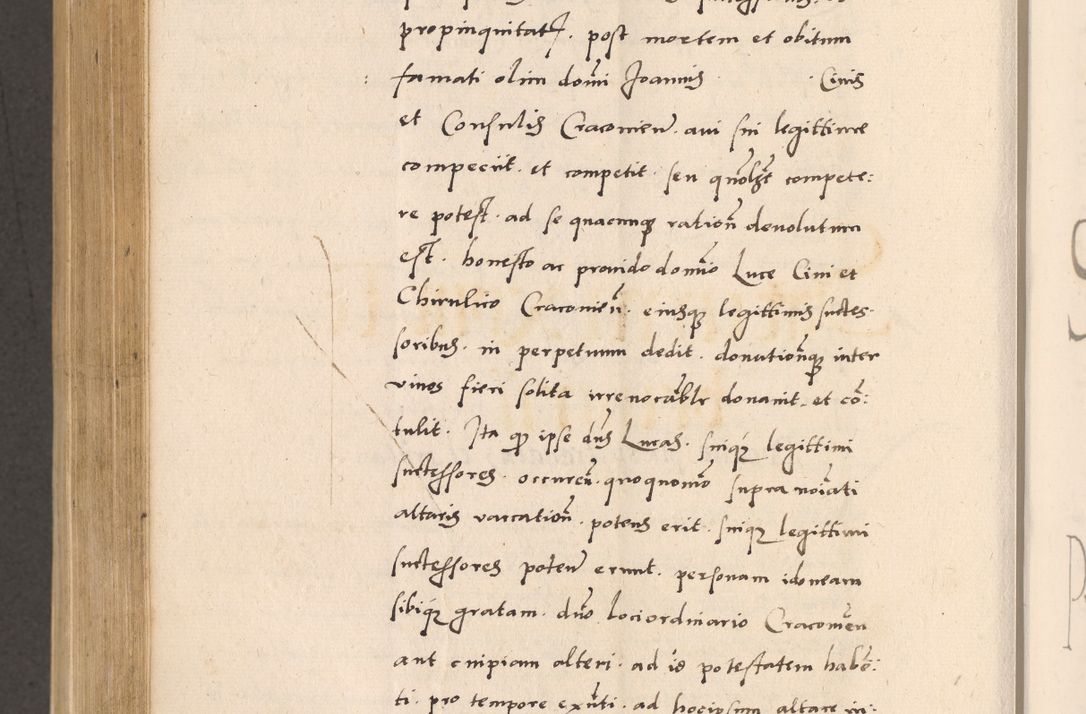 propinquitatꝭ. post mortem et obitum
famati olim dom̄i Joannis Civis
et Consulis Cracovień. avi sui legittime
compeciit. et competit. seu quōlz̄t compete:
re potest. ad se quacunqȝ ratioñ devolutum
est. honesto ac provido domīo Luce Civi et
Chirulico Cracovień. eiusqȝ legittimis succes-
soribus. in perpetuum dedit. donationēqȝ inter
vivos fieri solita irrevocāblr donavit. et cō:
tulit. Ita qȝ ipse dūs Lucas. suiqȝ legittimi
successores. occureñ. quoquomō supra noīati
altaris vaccatioñ. potens erit. suiqȝ legittimi
successores poteñ erunt. personam idoneam
sibiqȝ gratam. dūo loci ordinario Cracovień
aut cuipiam alteri. ad id potestatem habē:
ti. pro tempore exn̄ti. ad hocipsum altare in: